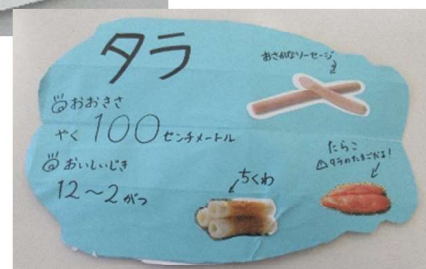 タラ
おさかなソーセージ
おおきさ
やく 100センチメートル
おいしいじき
12～2がつ
ちくわ
たらこ
⚠タラのたまごだよ!